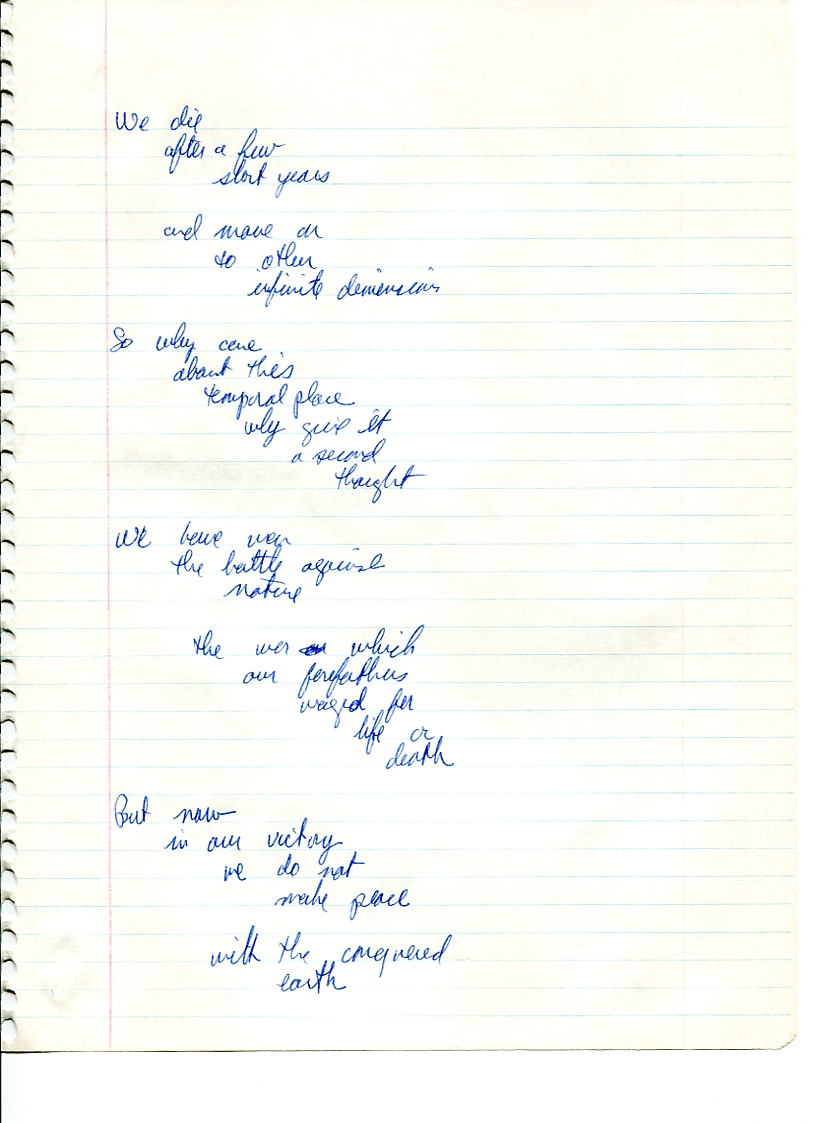 We die
after a few
short years
and move on
to other
infinite dimensions
So why care
about this
temporal place
why give it
a second
thought
We have won
the battle against
nature
the war which
our forefathers
waged for
life or
death
But now
in our victory
we do not
make peace
with the conquered
earth